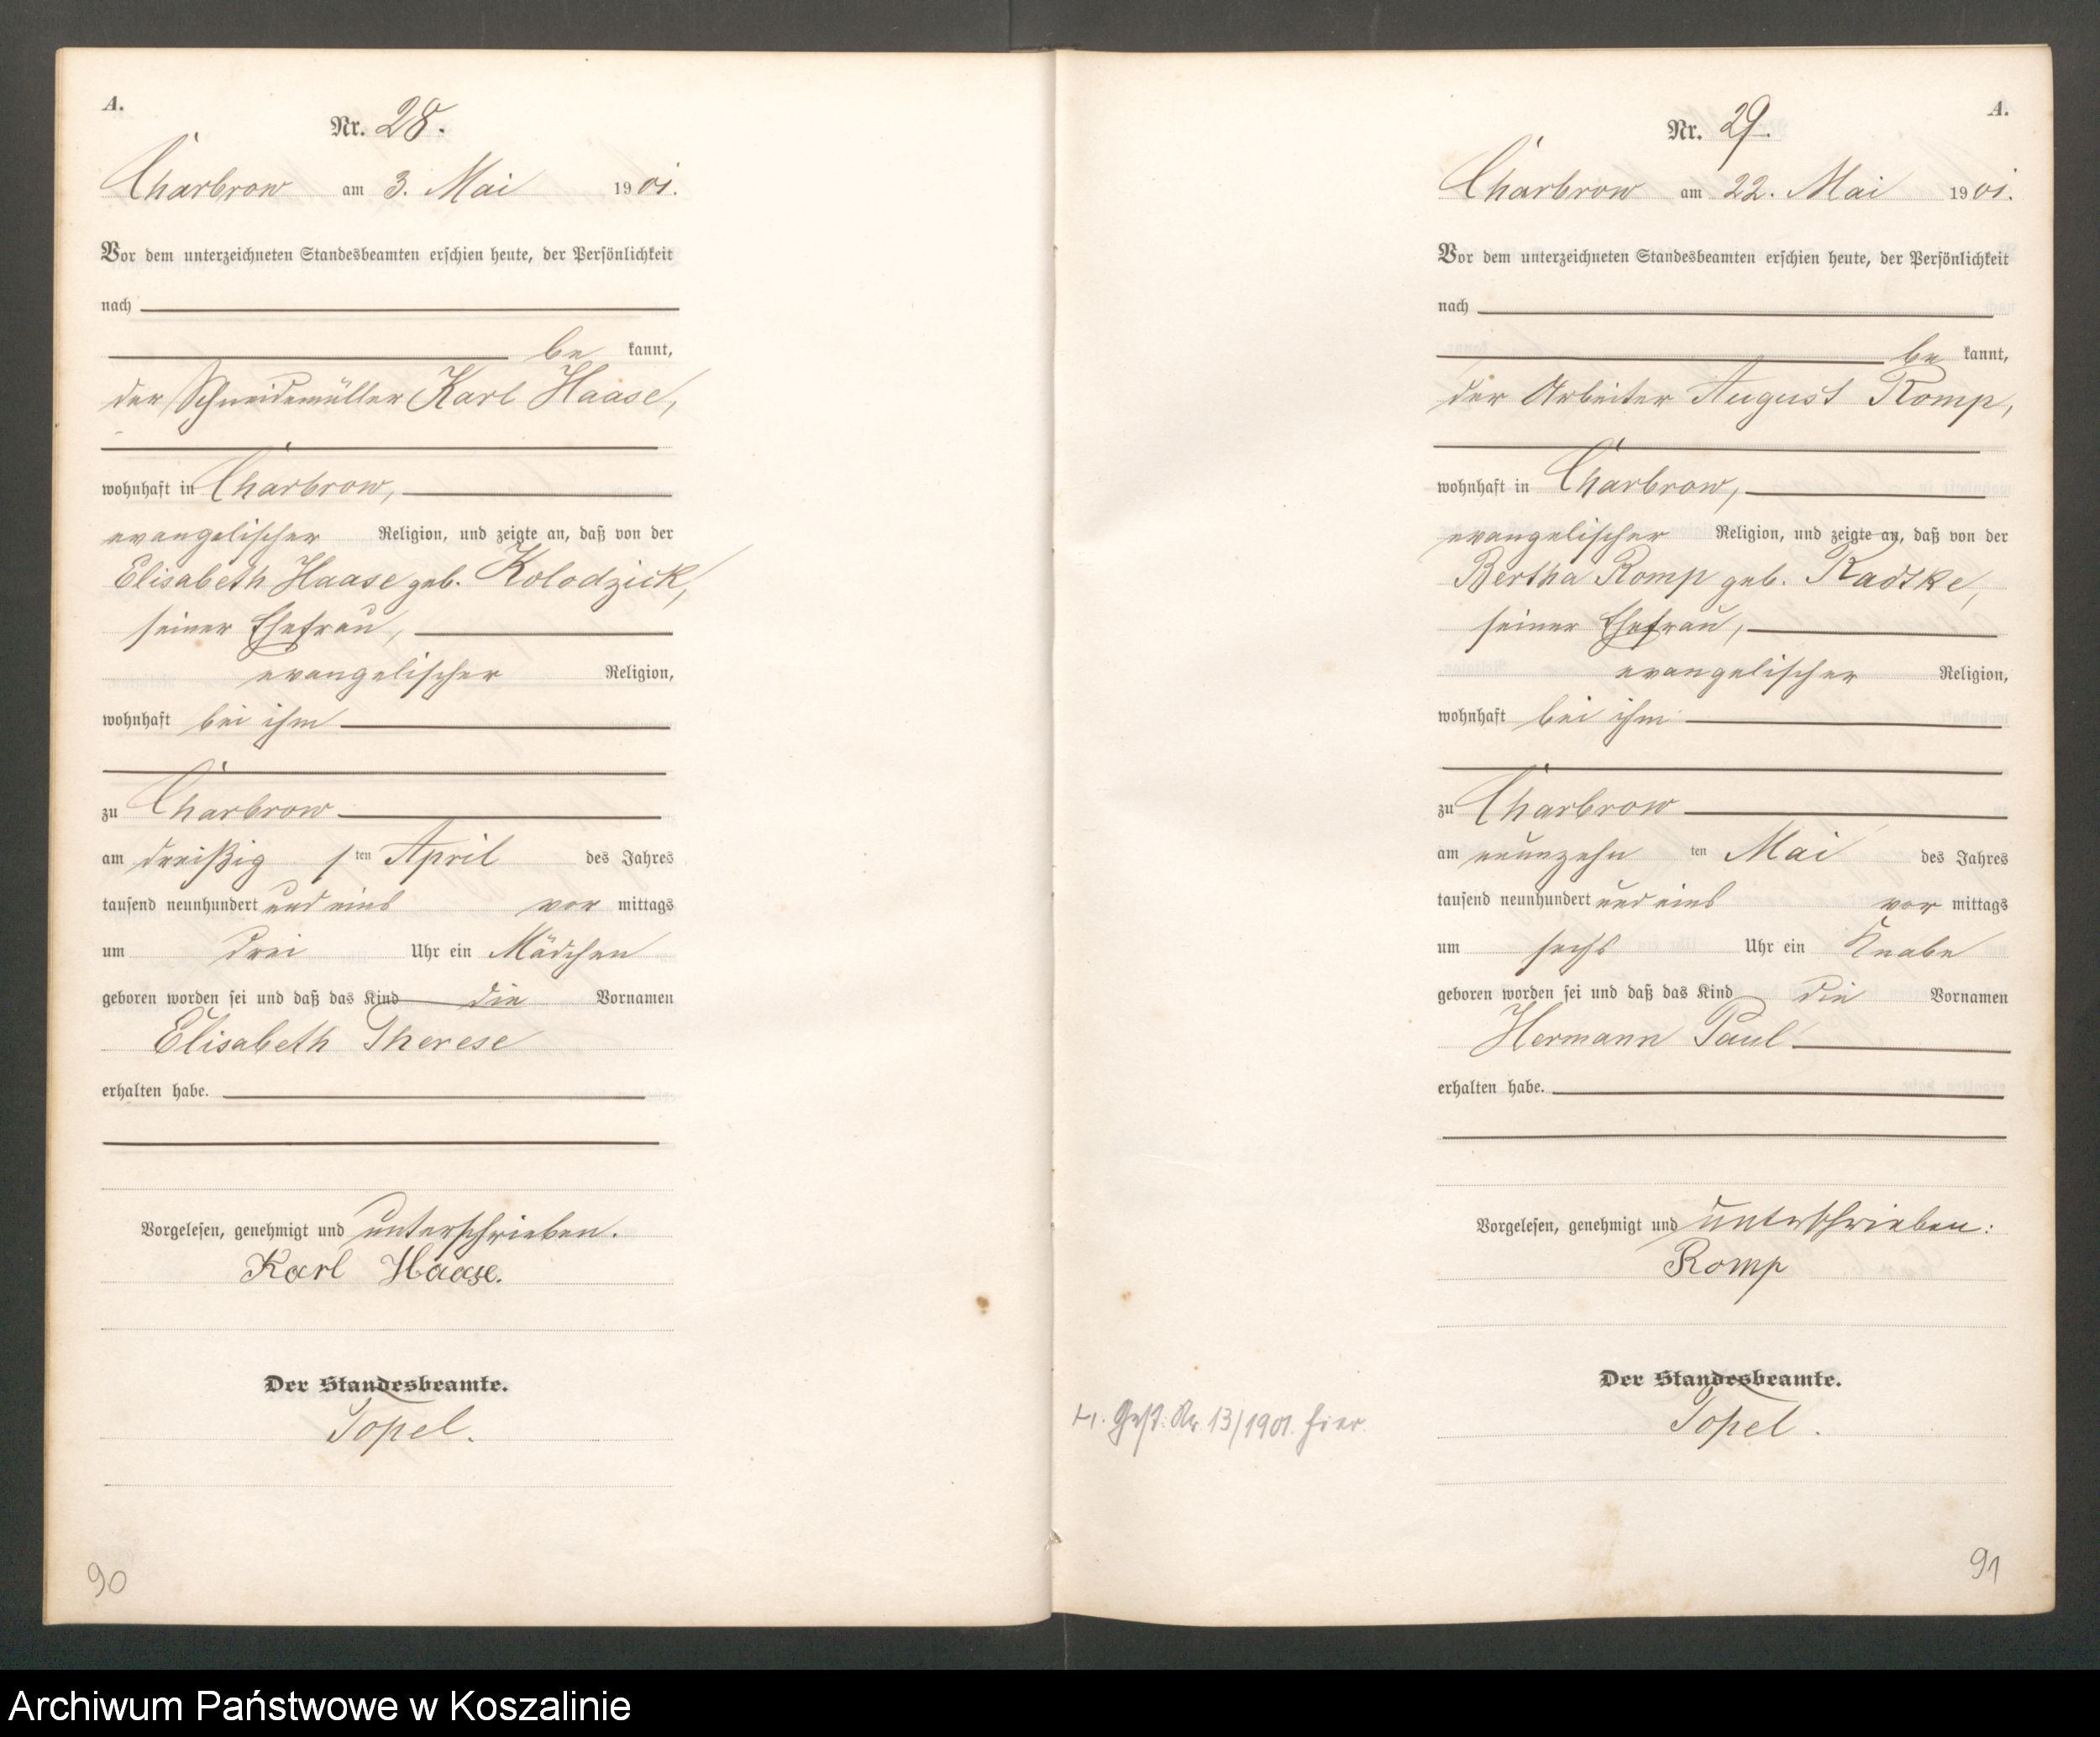 A.
Nr. 28.
Charbrow am 3. Mai 1901.
Vor dem unterzeichneten Standesbeamten erschien heute, der Persönlichkeit
nach
be kannt,
der Schneidemüller Karl Haase,
wohnhaft in Charbrow,
evangelischer Religion, und zeigte an, daß von der
Elisabeth Haase geb. Kolodzick,
seiner Ehefrau,
evangelischer Religion,
wohnhaft bei ihm
zu Charbrow
am dreißig sten April des Jahres
tausend neunhundert und eins vor mittags
um drei Uhr ein Mädchen
geboren worden sei und daß das Kind die Vornamen
Elisabeth Therese
erhalten habe.
Vorgelesen, genehmigt und unterschrieben.
Karl Haase.
Der Standesbeamte.
Topel.
90
A.
Nr. 29.
Charbrow am 22. Mai 1901.
Vor dem unterzeichneten Standesbeamten erschien heute, der Persönlichkeit
nach
be kannt,
der Arbeiter August Romp,
wohnhaft in Charbrow,
evangelischer Religion, und zeigte an, daß von der
Bertha Romp geb. Radtke,
seiner Ehefrau,
evangelischer Religion,
wohnhaft bei ihm
zu Charbrow
am neunzehn ten Mai des Jahres
tausend neunhundert und eins vor mittags
um sechs Uhr ein Knabe
geboren worden sei und daß das Kind die Vornamen
Hermann Paul
erhalten habe.
Vorgelesen, genehmigt und unterschrieben:
Romp
Der Standesbeamte.
Topel.
Nr. 13/1901. hier.
91
Archiwum Państwowe w Koszalinie